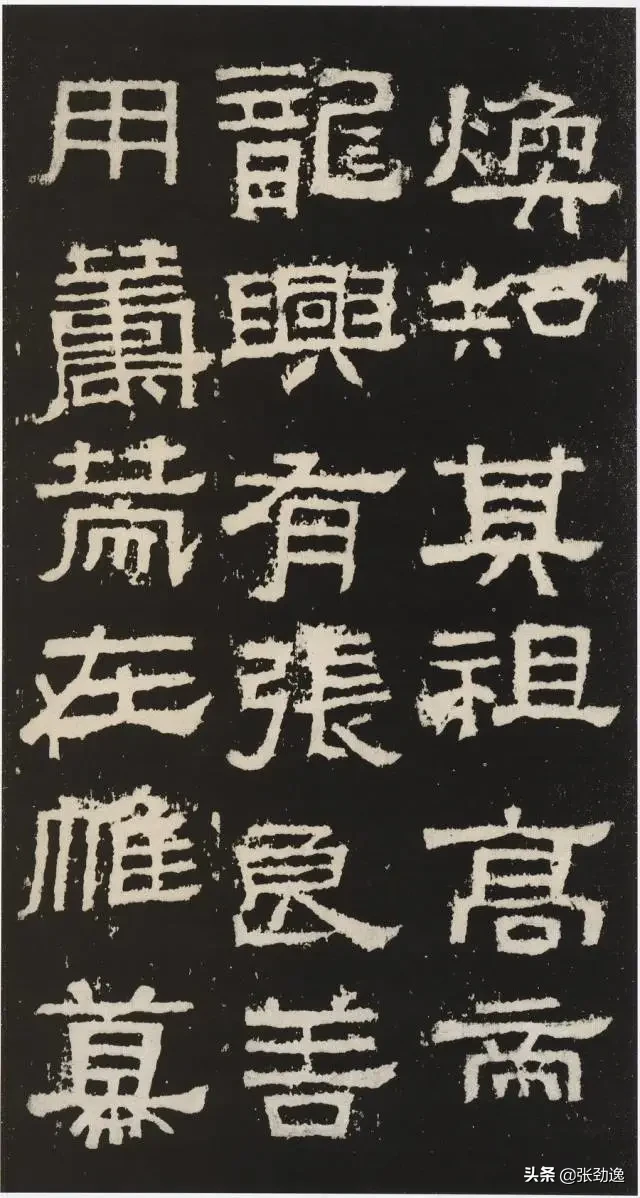 煥知其祖高帝
龍興有張良善
用籌策在帷幕
头条 @张劲逸